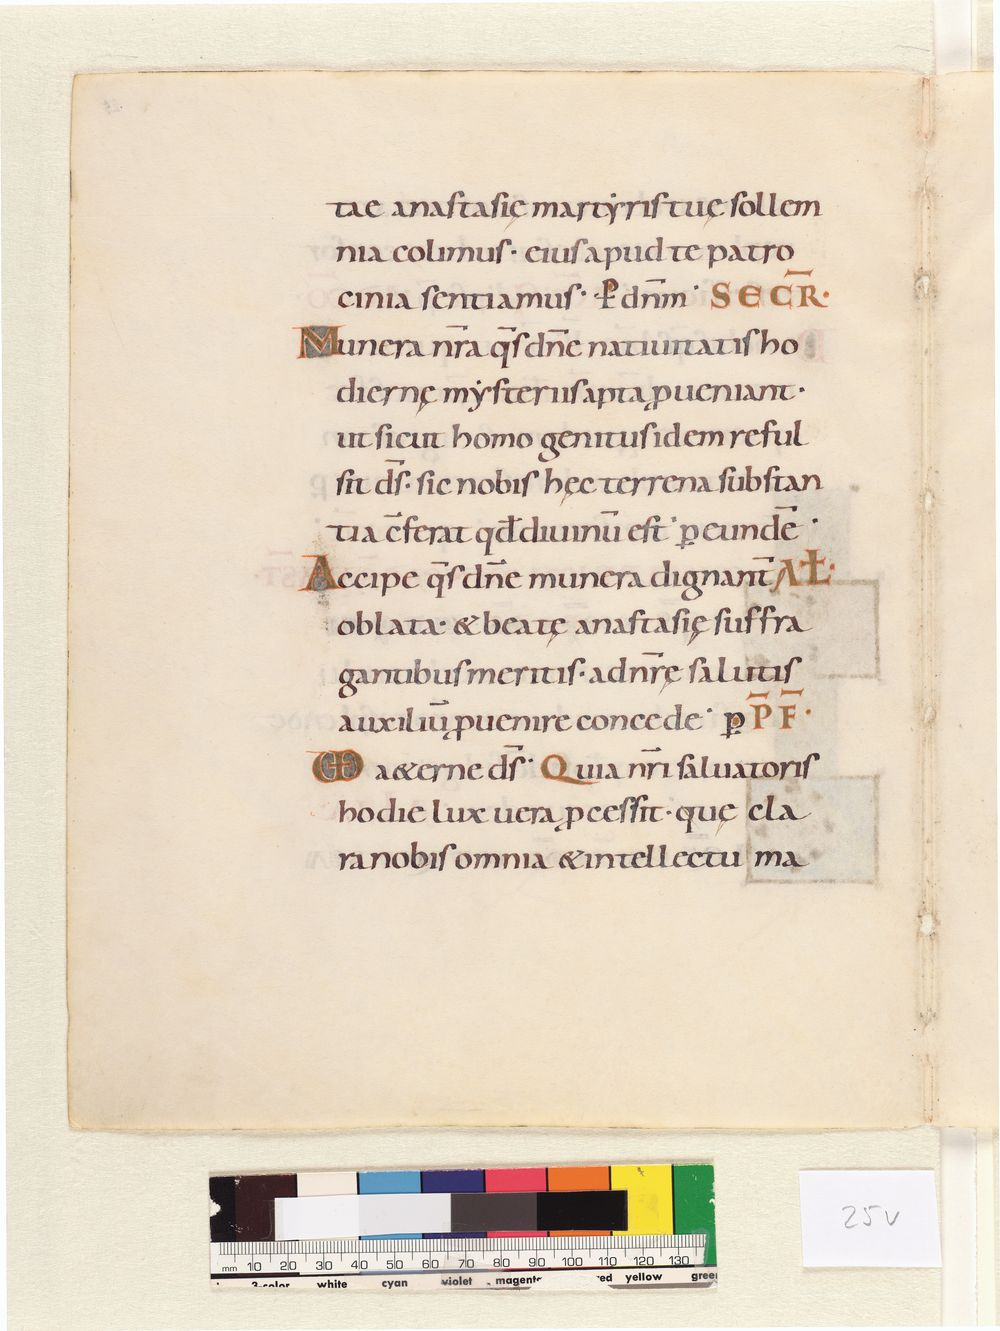 tae anastasię martẏris tuę sollem
nia colimus· eius apud te patro
cinia sentiamus· ꝑ dn̄m· SECR̄·
Munera nr̄a q̄s dn̄e natiuitatis ho
diernę mẏsteriis apta ꝓueniant·
ut sicut homo genitus idem reful
sit d̄s· sic nobis hęc terrena substan
tia c̄ferat qđ diuinū est· ꝑ eundē·
Accipe q̄s dn̄e munera dignant̄ AŁ·
oblata· & beatę anastasię suffra
gantibus meritis· ad nr̄ę salutis
auxiliū ꝓuenire concede· ꝑ P̄F̄·
UD a&erne d̄s· Quia nr̄i saluatoris
hodie lux uera ꝓcessit· quę cla
ra nobis omnia & intellectu ma
25v
mm 10 20 30 40 50 60 70 80 90 100 110 120 130
3-color white cyan violet magenta red yellow green